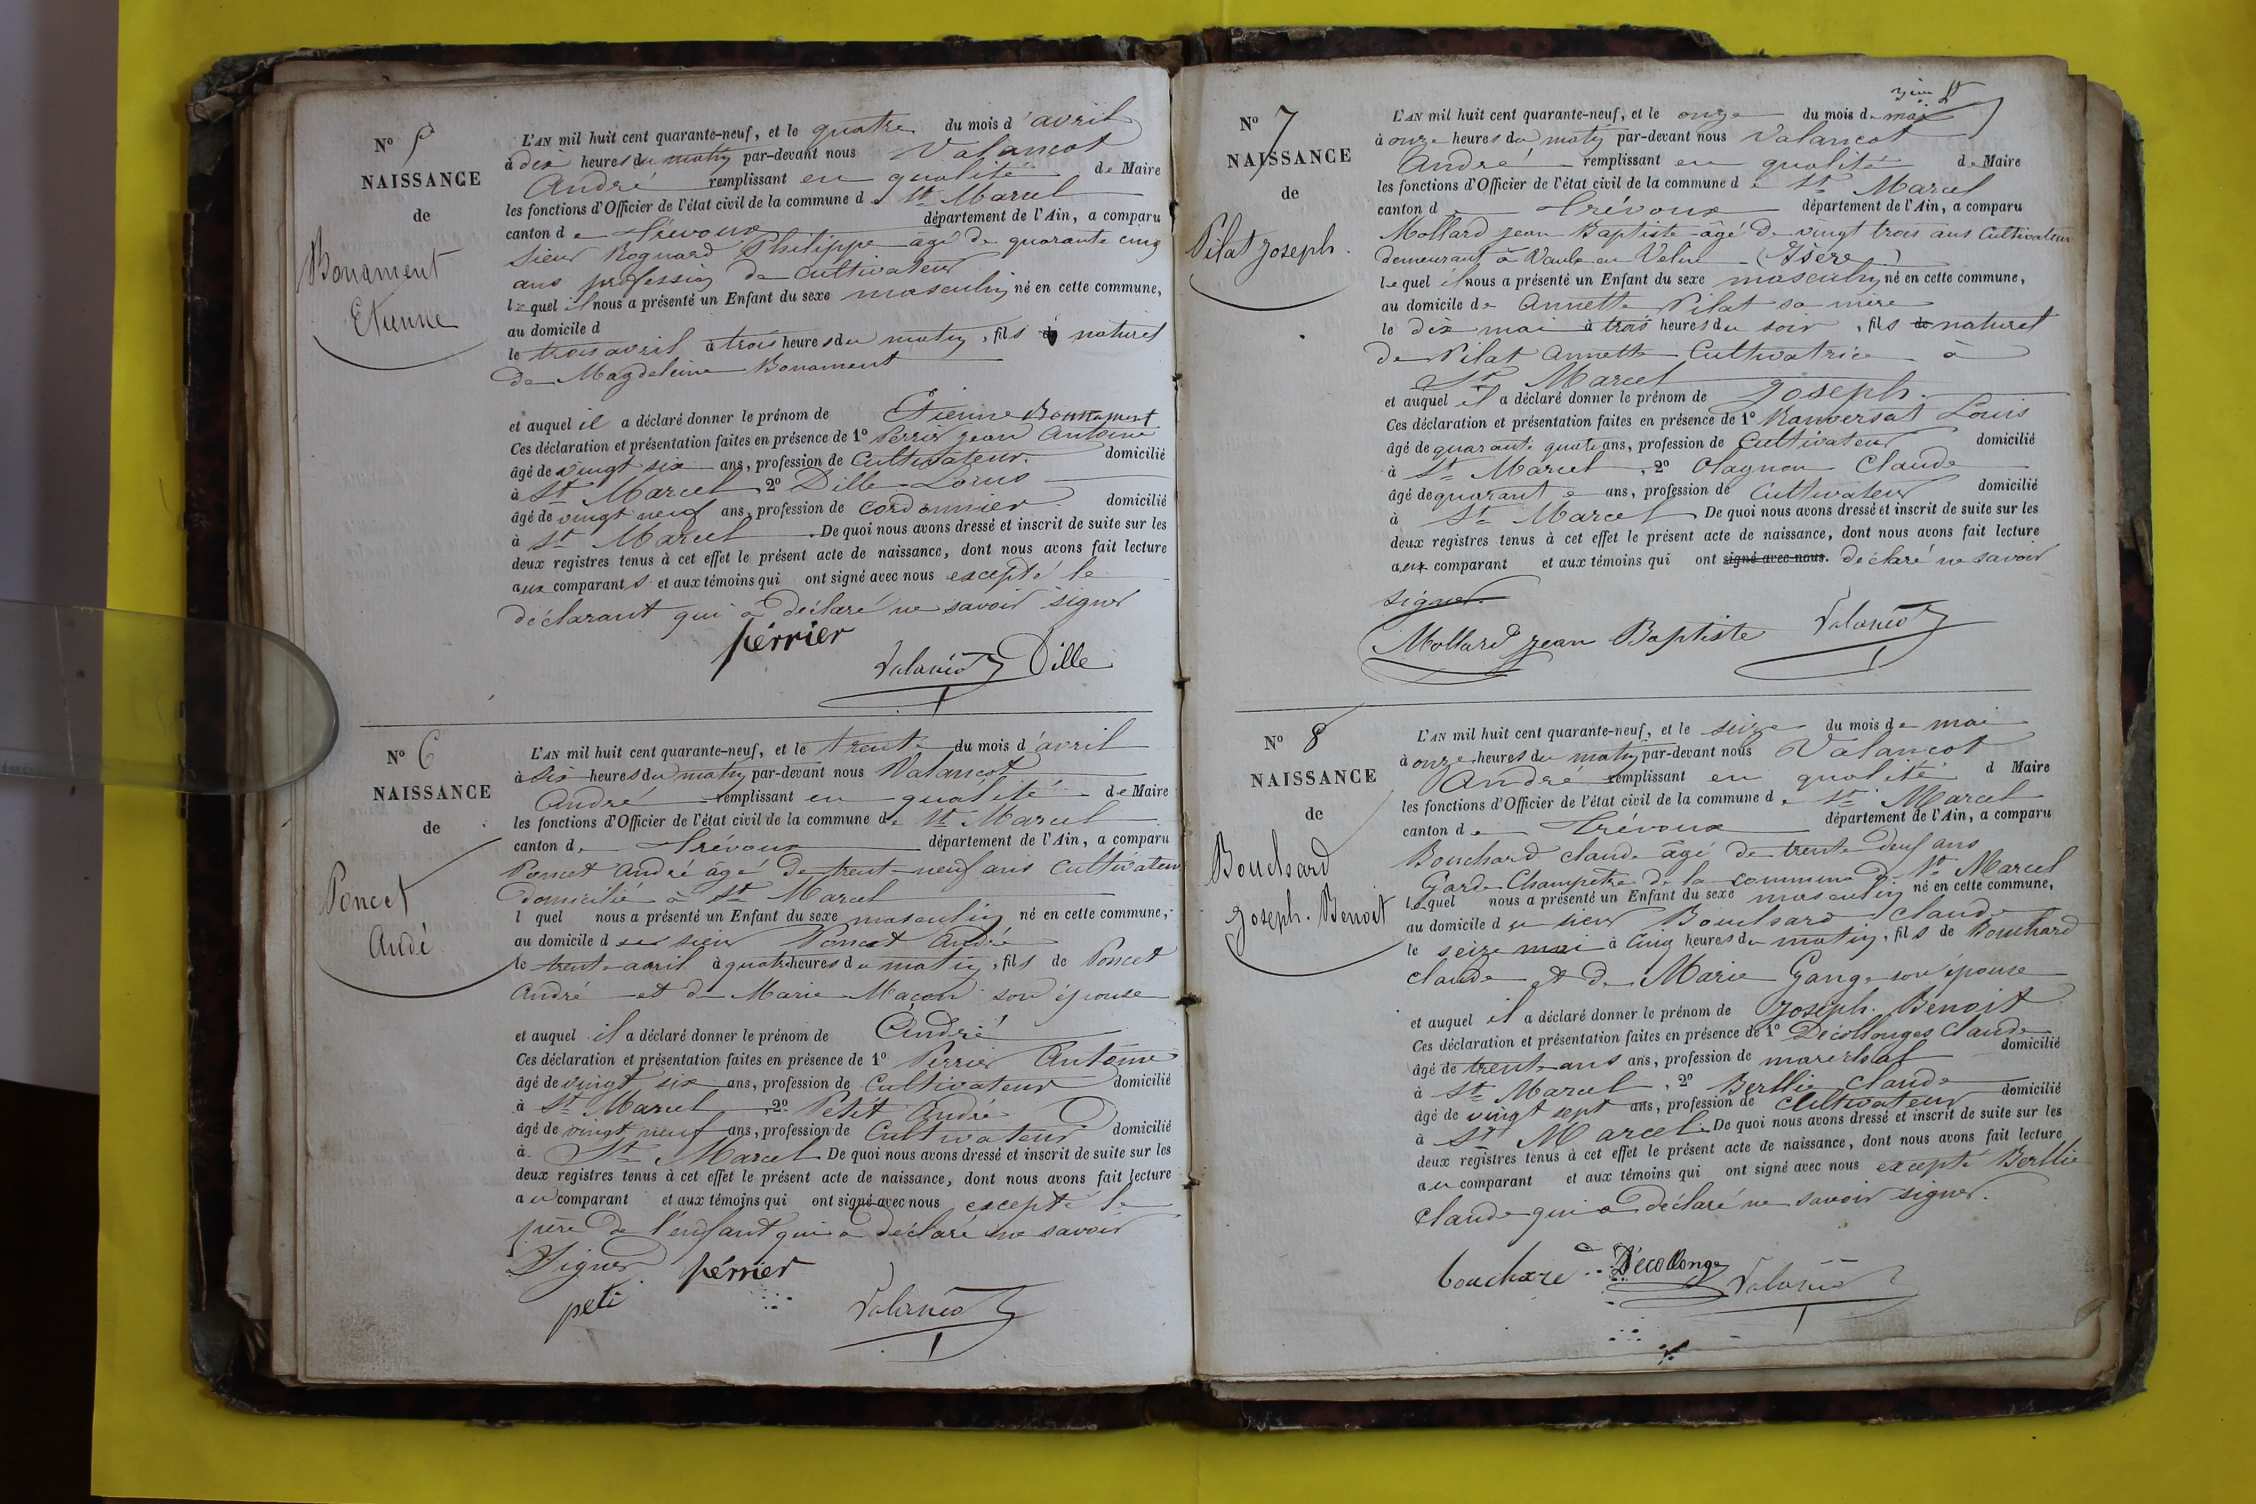 N° 5
NAISSANCE
de
Bonament
Etienne
L'AN mil huit cent quarante-neuf, et le quatre du mois d'avril
à dix heures du matin par-devant nous Valancot
André remplissant en qualité de Maire
les fonctions d'Officier de l'état civil de la commune de St Marcel
canton de Trévoux département de l'Ain, a comparu
sieur Rognard Philippe âgé de quarante cinq
ans profession de cultivateur
lequel il nous a présenté un Enfant du sexe masculin né en cette commune,
au domicile d
le trois avril à trois heures du matin, fils naturel
de Magdeleine Bonament
et auquel il a déclaré donner le prénom de Etienne Bonnament
Ces déclaration et présentation faites en présence de 1° Perrier jean Antoine
âgé de vingt six ans, profession de Cultivateur. domicilié
à St Marcel 2° Dille Louis
âgé de vingt neuf ans, profession de cordonnier domicilié
à St Marcel . De quoi nous avons dressé et inscrit de suite sur les
deux registres tenus à cet effet le présent acte de naissance, dont nous avons fait lecture
aux comparants et aux témoins qui ont signé avec nous excepté le
déclarant qui a déclaré ne savoir signer
périer
Valancot Dille
N° 6
NAISSANCE
de
Poncet
André
L'AN mil huit cent quarante-neuf, et le trente du mois d'avril
à dix heures du matin par-devant nous Valancot
André remplissant en qualité de Maire
les fonctions d'Officier de l'état civil de la commune de St Marcel
canton de Trévoux département de l'Ain, a comparu
Poncet André âgé de trente-neuf ans cultivateur
domicilié à St Marcel
l quel nous a présenté un Enfant du sexe masculin né en cette commune,
au domicile d sieur Poncet André
le trente avril à quatre heures du matin, fils de Poncet
André et de Marie Macon son épouse
et auquel il a déclaré donner le prénom de André
Ces déclaration et présentation faites en présence de 1° Perrier Antoine
âgé de vingt six ans, profession de Cultivateur domicilié
à St Marcel 2° Petit André
âgé de vingt neuf ans, profession de Cultivateur domicilié
à St Marcel De quoi nous avons dressé et inscrit de suite sur les
deux registres tenus à cet effet le présent acte de naissance, dont nous avons fait lecture
au comparant et aux témoins qui ont signé avec nous excepté le
père de l'enfant qui a déclaré ne savoir
Signer périer
peti Valancot
N° 7
NAISSANCE
de
Pilat Joseph.
L'AN mil huit cent quarante-neuf, et le onze du mois de mai
à onze heures du matin par-devant nous Valancot
André remplissant en qualité de Maire
les fonctions d'Officier de l'état civil de la commune de St Marcel
canton de Trévoux département de l'Ain, a comparu
Mollard jean Baptiste âgé de vingt trois ans Cultivateur
demeurant à Vaulx en Velin (Isère)
lequel il nous a présenté un Enfant du sexe masculin né en cette commune,
au domicile de Annette Pilat sa mère
le dix mai à trois heures du soir, fils de naturel
de Pilat Annette Cultivatrice à
St Marcel
et auquel il a déclaré donner le prénom de Joseph.
Ces déclaration et présentation faites en présence de 1° Louis
âgé de quarante quatre ans, profession de Cultivateur domicilié
à St Marcel , 2° Olagnon Claude
âgé de quarante ans, profession de Cultivateur domicilié
à St Marcel De quoi nous avons dressé et inscrit de suite sur les
deux registres tenus à cet effet le présent acte de naissance, dont nous avons fait lecture
aux comparant et aux témoins qui ont signé avec nous. déclaré ne savoir
signer.
Mollard jean Baptiste Valancot
N° 8
NAISSANCE
de
Bouchard
Joseph. Benoit
L'AN mil huit cent quarante-neuf, et le seize du mois de mai
à onze heures du matin par-devant nous Valancot
André remplissant en qualité d Maire
les fonctions d'Officier de l'état civil de la commune de St Marcel
canton de Trévoux département de l'Ain, a comparu
Bouchard claude âgé de trente deux ans
Garde Champêtre de la commune de St Marcel
lequel nous a présenté un Enfant du sexe masculin né en cette commune,
au domicile du sieur Bouchard Claude
le seize mai à cinq heures du matin, fils de Bouchard
claude et de Marie Gange son épouse
et auquel il a déclaré donner le prénom de Joseph. Benoit
Ces déclaration et présentation faites en présence de 1° Décollonges Claude
âgé de trente ans ans, profession de maréchal domicilié
à St Marcel , 2° Berllie Claude
âgé de vingt sept ans, profession de Cultivateur domicilié
à St Marcel De quoi nous avons dressé et inscrit de suite sur les
deux registres tenus à cet effet le présent acte de naissance, dont nous avons fait lecture
au comparant et aux témoins qui ont signé avec nous excepté Berllie
Claude qui a déclaré ne savoir signer.
bouchare Décollonge Valancot